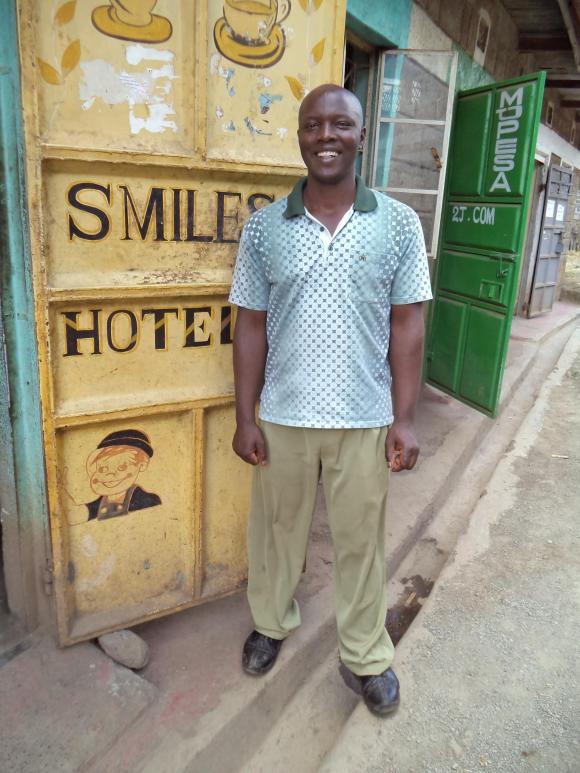 SMILES
HOTEL
MPESA
2J.COM